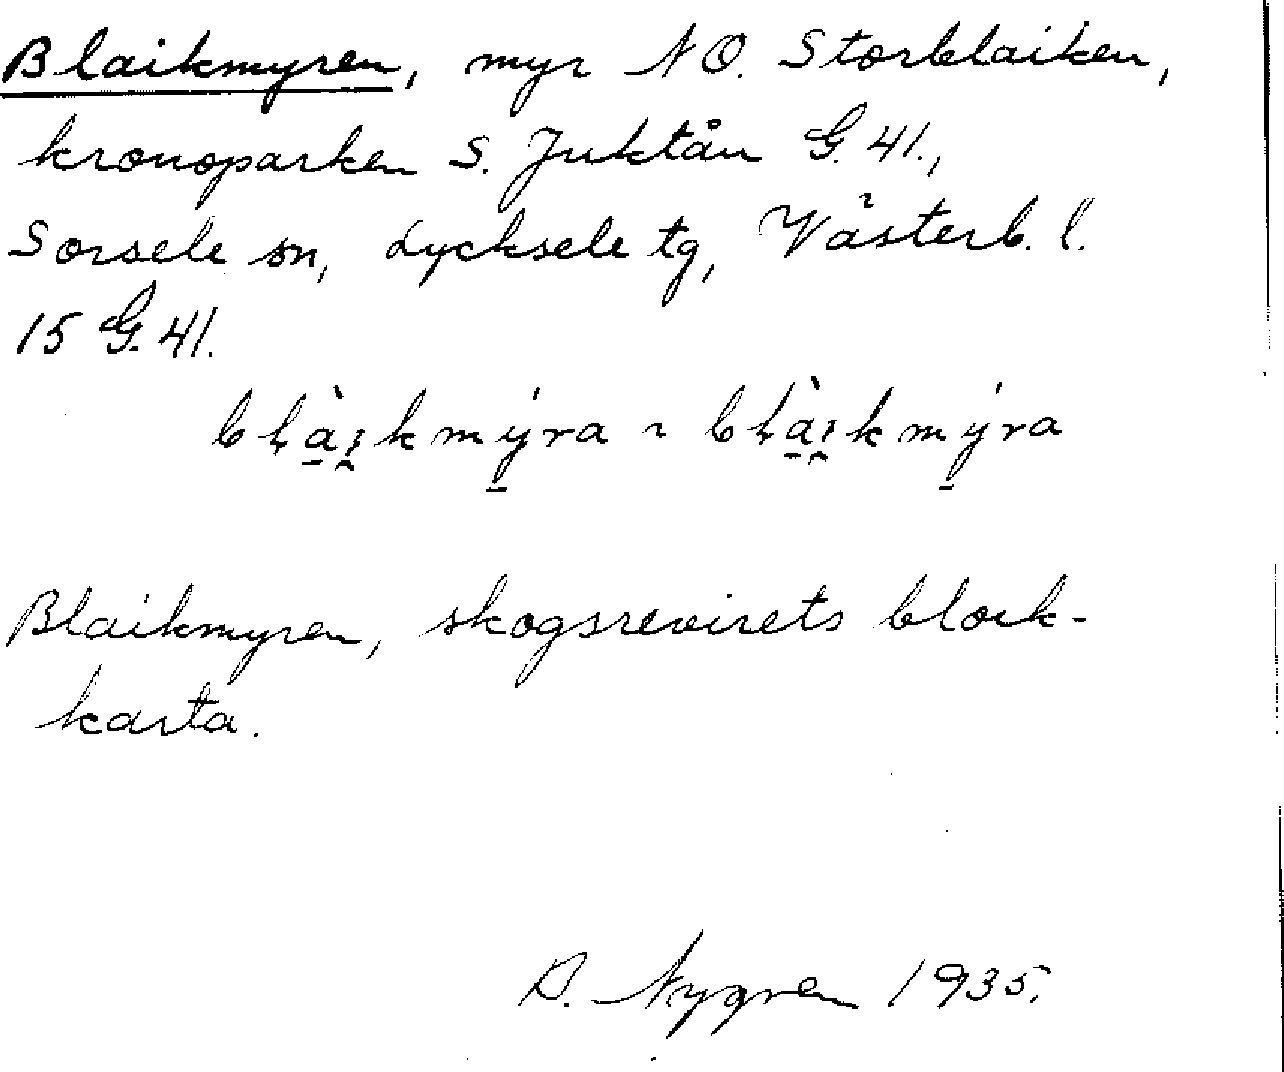 Blaikmyren, myr NO. Storblaiken,
kronoparken S. Juktån G. 41.,
Sorsele sn, Lycksele tg, Västerb. l.
15 G. 41.
Blaikmyren, skogsrevirets block-
karta.
Nygren 1935.